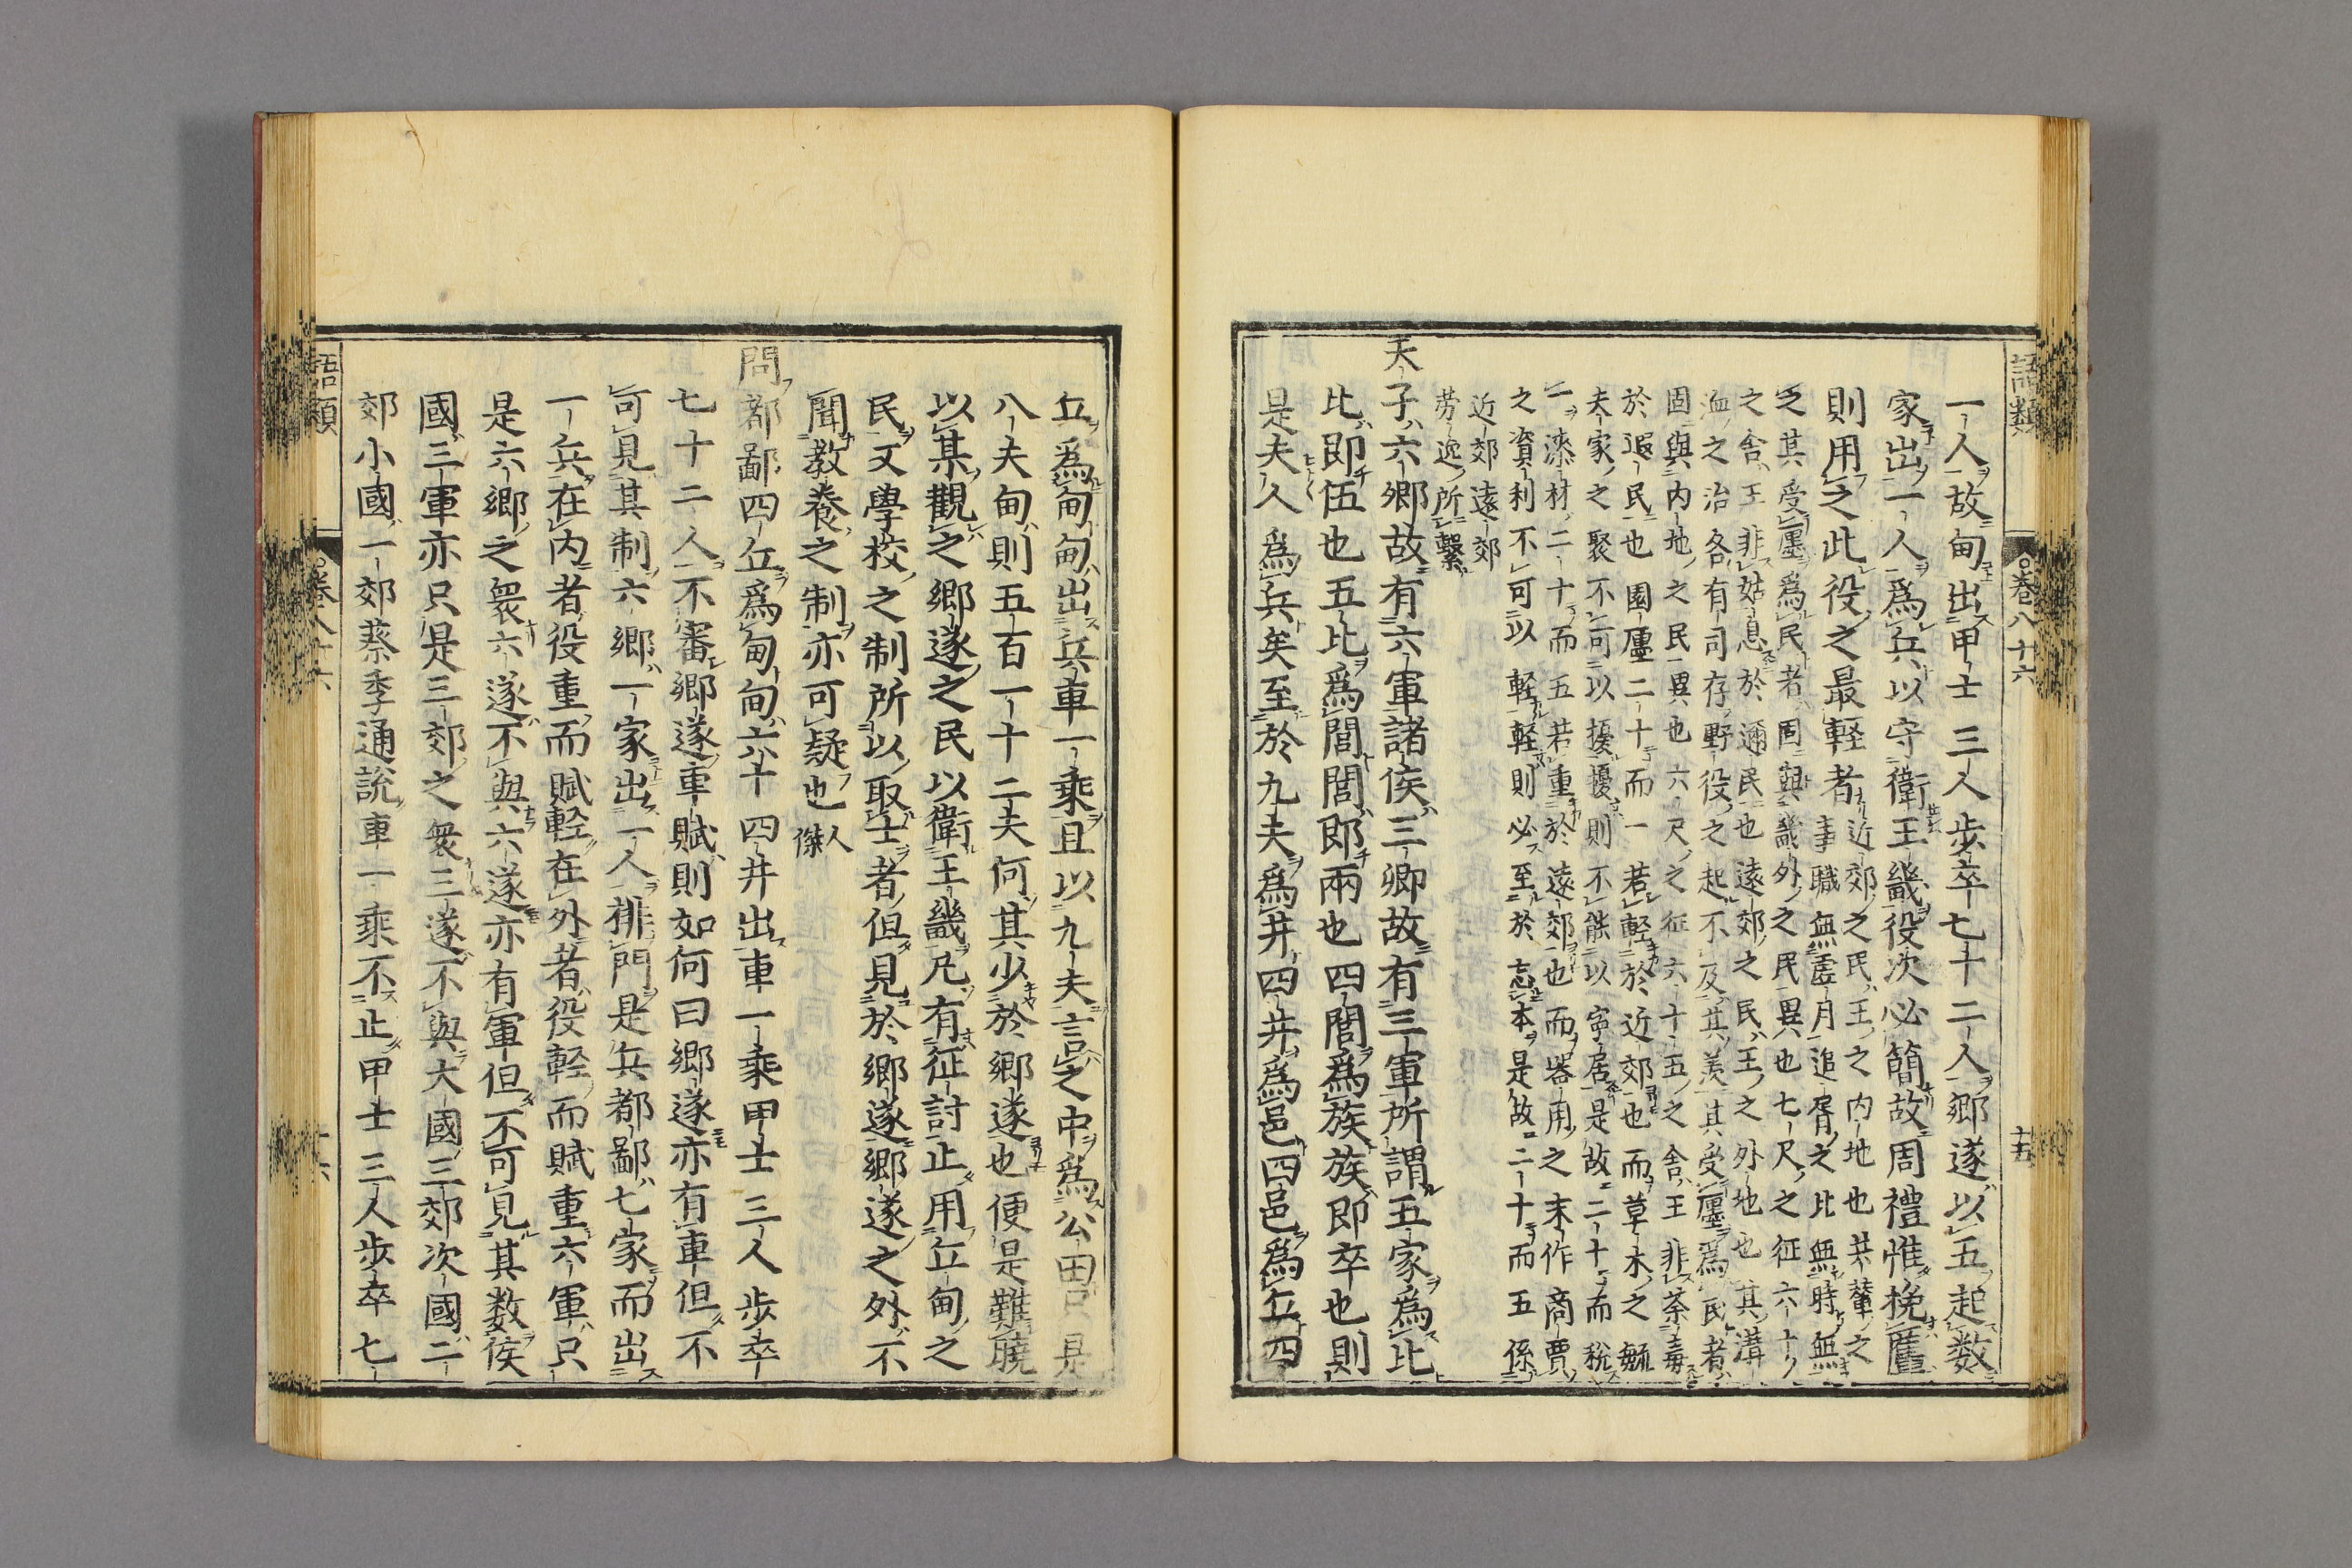 語類 卷八十六 十五
一人故甸出甲士三人步卒七十二人鄉遂以五起数
家出一人爲兵以守衛王畿役次必簡故周禮惟挽匶
則用之此役之最軽者
近郊之民王之内地也共輦之
事職無虛月追胥之比無時無
乏其受廛爲民者固與畿外之民異也七尺之征六十
之舎王非姑息於邇民也遠郊之民王之外地也其溝
洫之治各有司存野役之起不及其羨其受廛爲民者
固與内地之民異也六尺之征六十五之舎王非荼毒
於遐民也園廛二十而一若軽於近郊也而草木之毓
夫家之聚不可以擾擾則不能以寧居是故二十而稅
一漆材二十而五若重於遠郊也而器用之末作商賈
之資利不可以軽軽則必至於忘本是故二十而五係
近郊遠郊
勞逸所繫
天子六鄉故有六軍諸侯三卿故有三軍所謂五家爲比
比即伍也五比爲閭閭即兩也四閭爲族族即卒也則
是夫人爲兵矣至於九夫爲井四井爲邑四邑爲丘四
丘爲甸甸出兵車一乘且以九夫言之中爲公田只是
八夫甸則五百一十二夫何其少於鄉遂也便是難曉
以某觀之鄉遂之民以衛王畿凡有征討止用丘甸之
民又學校之制所以取士者但見於鄉遂鄉遂之外不
聞教養之制亦可疑也人傑
問都鄙四丘爲甸甸六十四井出車一乘甲士三人步卒
七十二人不審鄉遂車賦則如何曰鄉遂亦有車但不
可見其制六鄉一家出一人排門是兵都鄙七家而出
一兵在内者役重而賦軽在外者役軽而賦重六軍只
是六鄉之衆六遂不與六遂亦有軍但不可見其数侯
國三軍亦只是三郊之衆三遂不與大國三郊次國二
郊小國一郊蔡季通説車一乘不止甲士三人步卒七
語類 卷八十六 十六